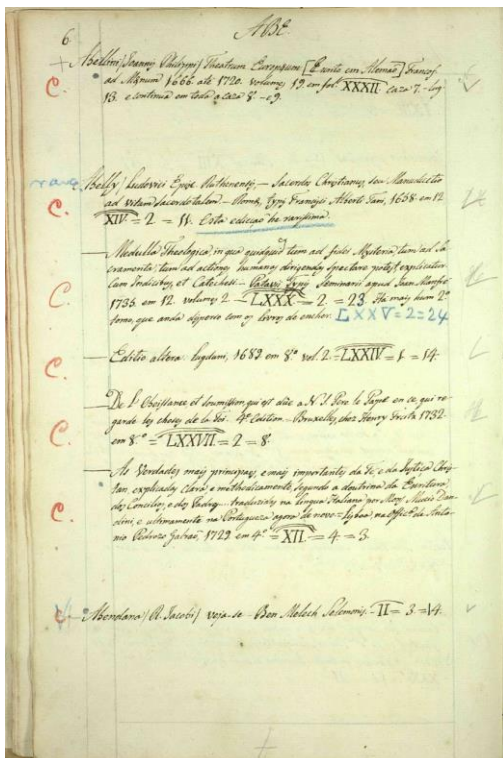 6
ABE.
Abellini (Joannis Philippi) Theatrum Europæum [Escrito em Alemaõ] Francof.
ad Mœnum 1666 até 1720. volumes 19 em fol. XXXII. caza 7.
13. e continua em toda a caza 8. e 9.
C.
rara
Abelly (Ludovici Episc. Ruthenensis) — Sacerdos Christianus, seu Manuductio
ad vitam sacerdotalem — Romæ, Typis Francisci Alberti Tani, 1638 em 12
XIV = 2 = 11. Esta ediçaõ he rarissima.
C.
— Medulla Theologica, in qua quidquid tum ad fidei Mysteria, tum ad Sa-
cramenta, tum ad actiones humanas dirigendas spectare potest, explicatur
cum Indicibus, et Catechesi. — Patavii Typis Seminarii apud Joan. Manfré
1733. em 12. volumes 2 — LXXX = 2 = 23. Ha mais hum 2º
tomo, que anda disperso com os livros de encher. LXXV = 2 = 24
C.
— Editio altera. Lugduni, 1689 em 8º vol. 2. = LXXIV = 1 = 14.
C.
— De l'Obeissance et soumission qui est düe a N. S. Pere le Pape en ce, qui re-
garde les choses de la foi. 4ª Edition — Bruxelles, chez Henry Frickx 1732.
em 8.º = LXXVII. = 2 = 8.
C.
— As Verdades mais principaes, e mais importantes da Fé, e da Justiça Chris-
tan, explicadas clara e methodicamente, segundo a doutrina da Escritura,
dos Concilios, e dos Padres... traduzidas na lingua Italiana por Mons. Mucio Dan-
dini, e ultimamente na Portugueza agora de novo = Lisboa, na Offic.ª de Anto-
nio Pedrozo Galraõ, 1729 em 4º = XII. = 4 = 3.
C.
Abendana (R. Jacobi) veja-se — Ben Melech Selemonis. II = 3. = 14.
C.